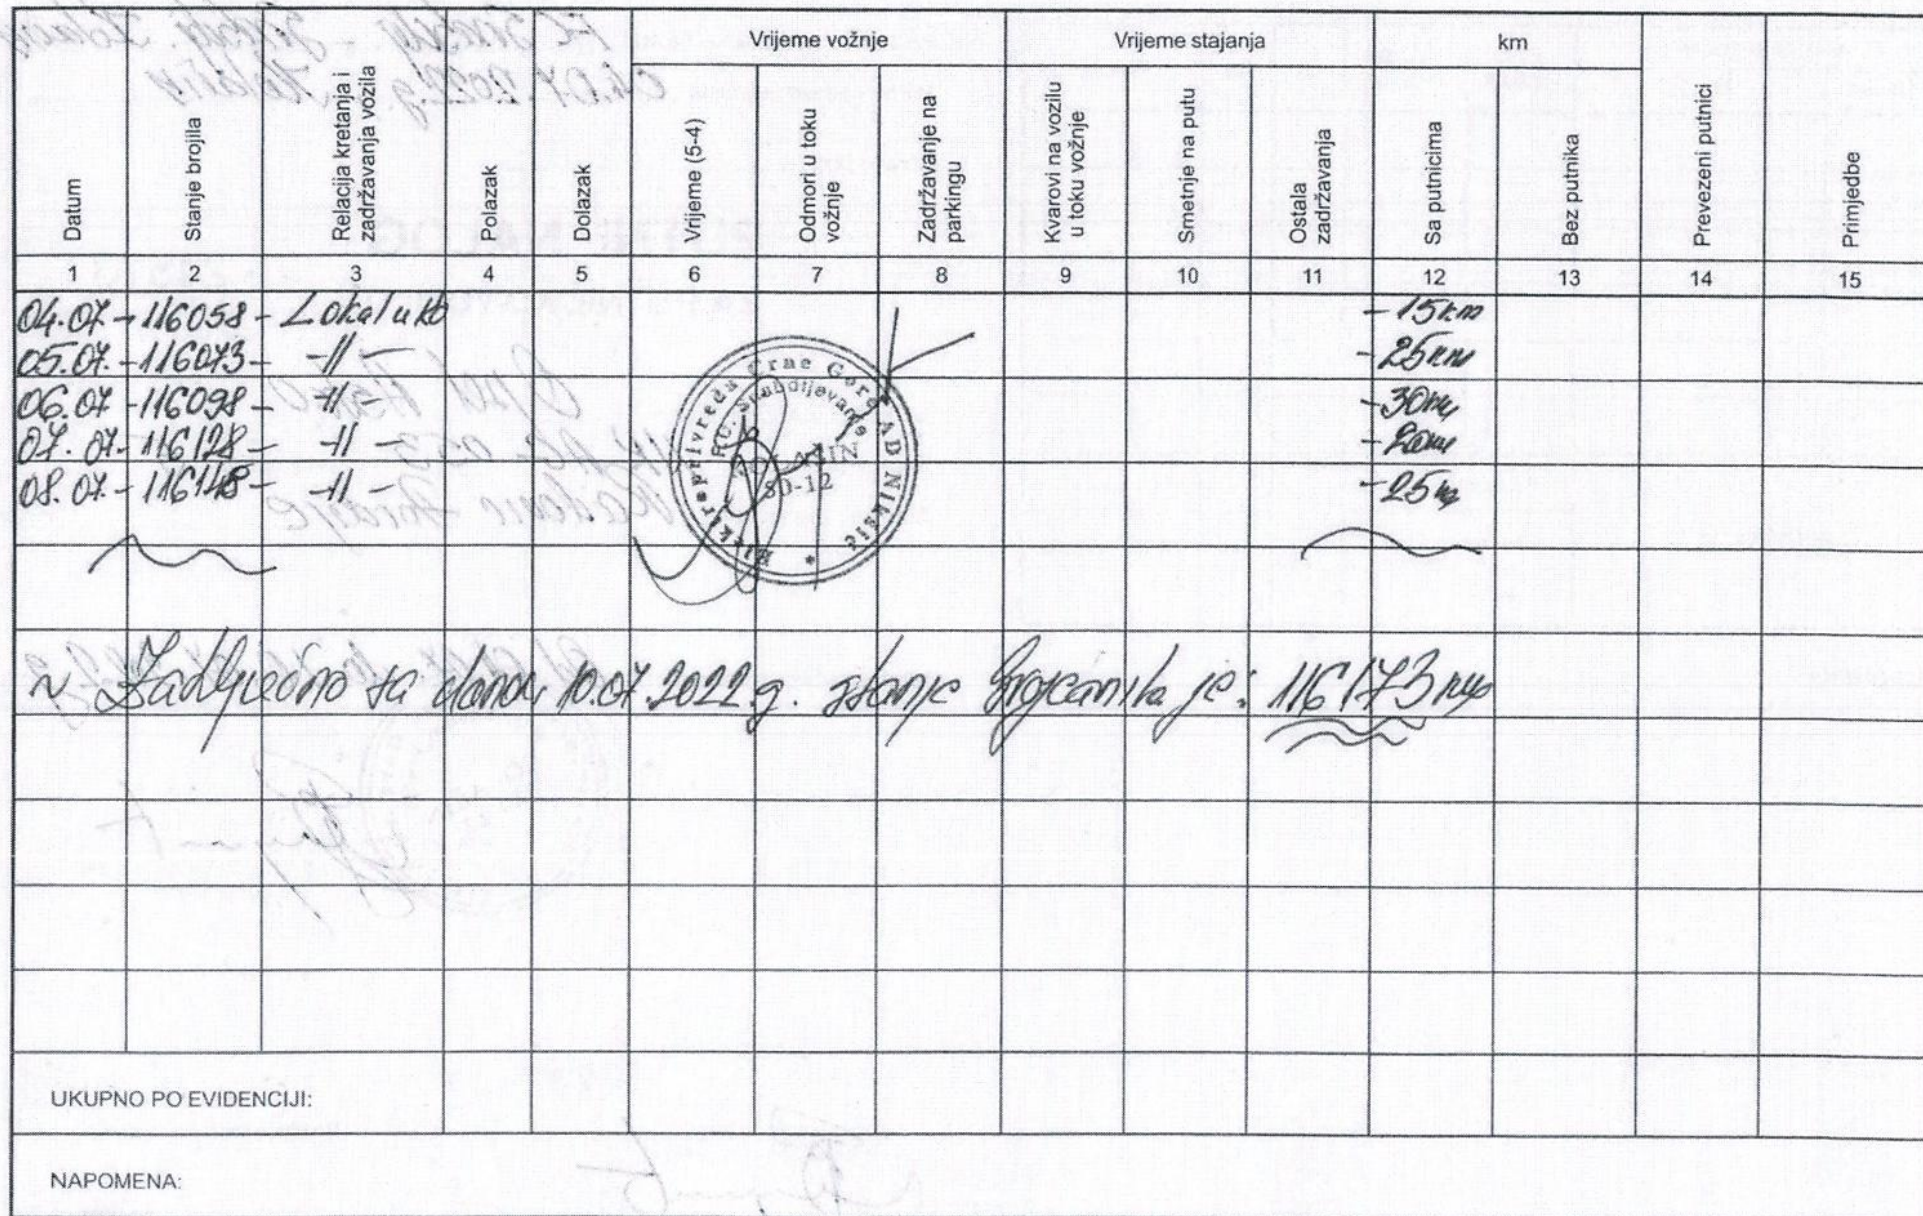 Vrijeme vožnje Vrijeme stajanja km
Datum
Stanje brojila
Relacija kretanja i
zadržavanja vozila
Polazak
Dolazak
Vrijeme (5-4)
Odmori u toku
vožnje
Zadržavanje na
parkingu
Kvarovi na vozilu
u toku vožnje
Smetnje na putu
Ostala
zadržavanja
Sa putnicima
Bez putnika
Prevezeni putnici
Primjedbe
1 2 3 4 5 6 7 8 9 10 11 12 13 14 15
04.07 - 116058 - Lokal u KO - 15 km
05.07. - 116073 - -//- - 25 km
06.07 - 116098 - -//- - 30 km
07.07. - 116128 - -//- - 20 km
08.07. - 116148 - -//- - 25 km
Elektroprivreda Crne Gore AD Nikšić
Snabdijevanje
80-12
~ Zaključeno sa danom 10.07.2022.g. stanje brojčanika je: 116173 km
UKUPNO PO EVIDENCIJI:
NAPOMENA: